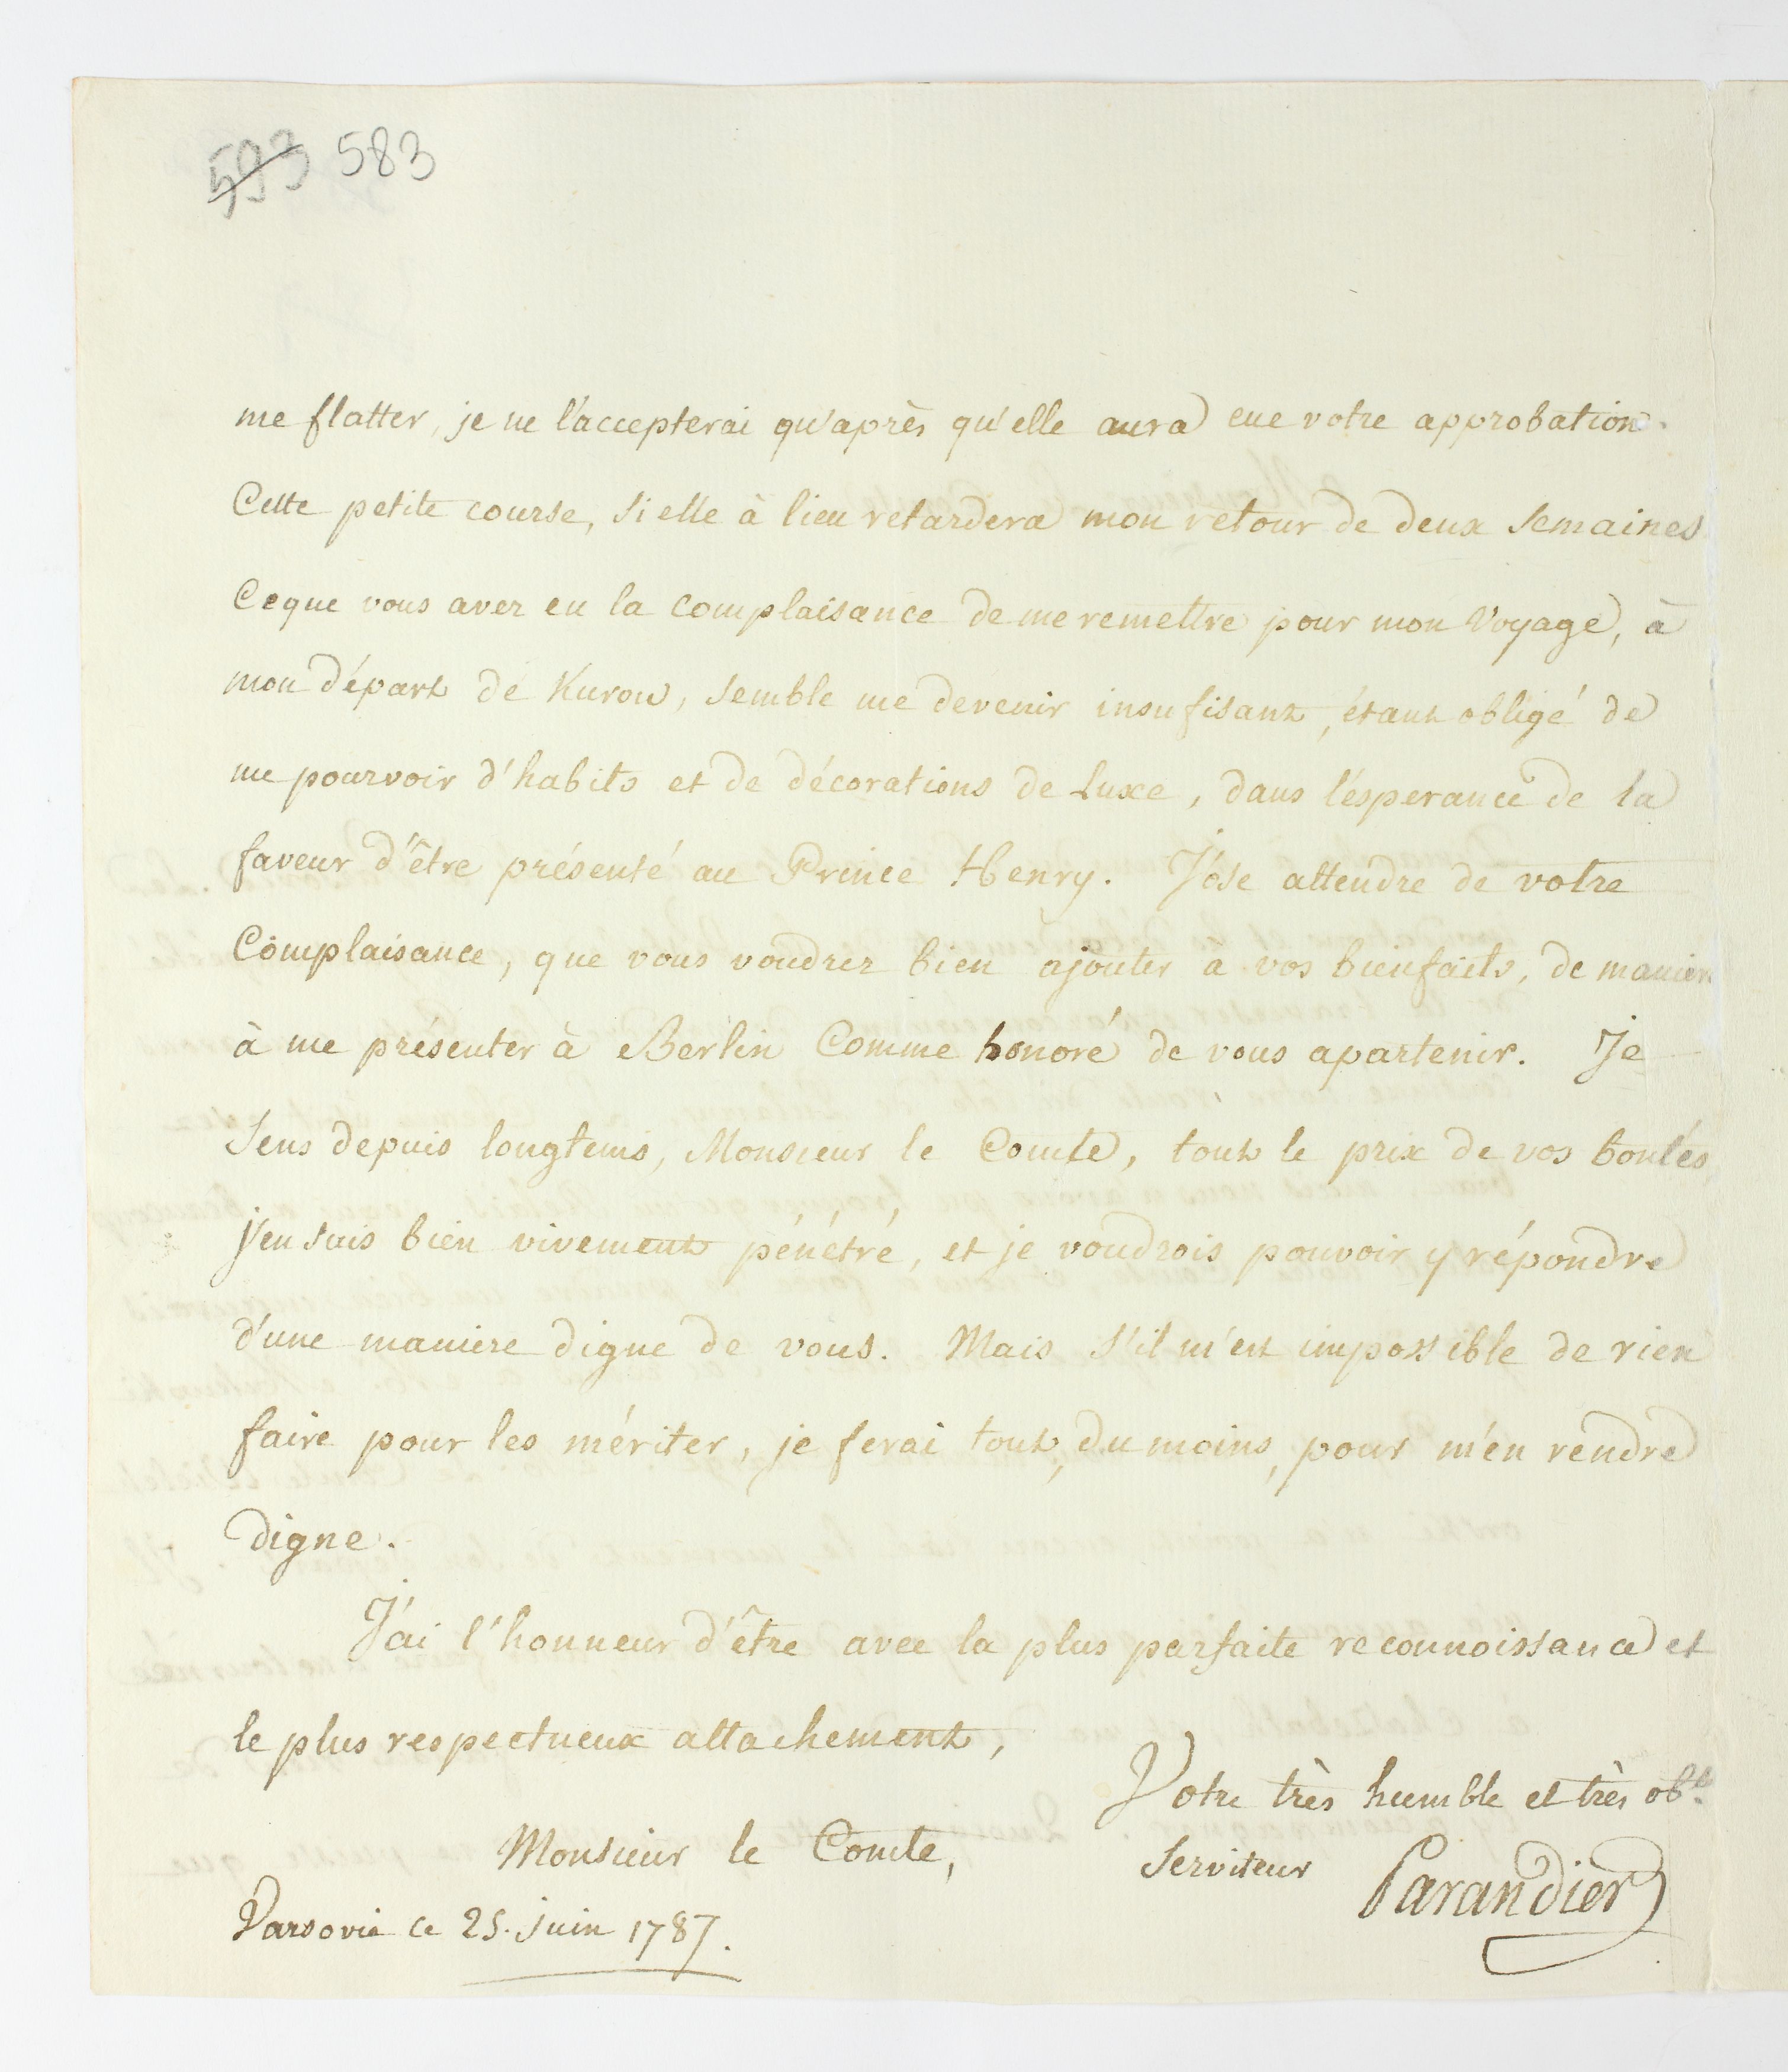 593 583
me flatter, je ne l'accepterai qu'après qu'elle aura eue votre approbation.
Cette petite course, si elle à lieu retardera mon retour de deux semaines
Ceque vous avez eu la complaisance de me remettre pour mon Voyage, à
mon départ de Kurow, semble me devenir insufisant, étant obligé de
me pourvoir d'habits et de décorations de luxe, dans l'ésperance de la
faveur d'être présenté au Prince Henry. J'ôse attendre de votre
Complaisance, que vous voudrez bien ajouter à vos bienfaits, de manier
à me présenter à Berlin Comme honoré de vous apartenir. Je
Sens depuis longtems, Monsieur le Comte, tout le prix de vos bontés,
j'en suis bien vivement pénétré, et je voudrois pouvoir y répondre
d'une maniere digne de vous. Mais s'il m'est impossible de rien
faire pour les mériter, je ferai tout, du moins, pour m'en rendre
digne.
J'ai l'honneur d'être avec la plus parfaite reconnoissance et
le plus respectueux attachement,
Monsieur le Comte,
Votre très humble et très obt.
Serviteur Parandier
Varsovie ce 25. Juin 1787.